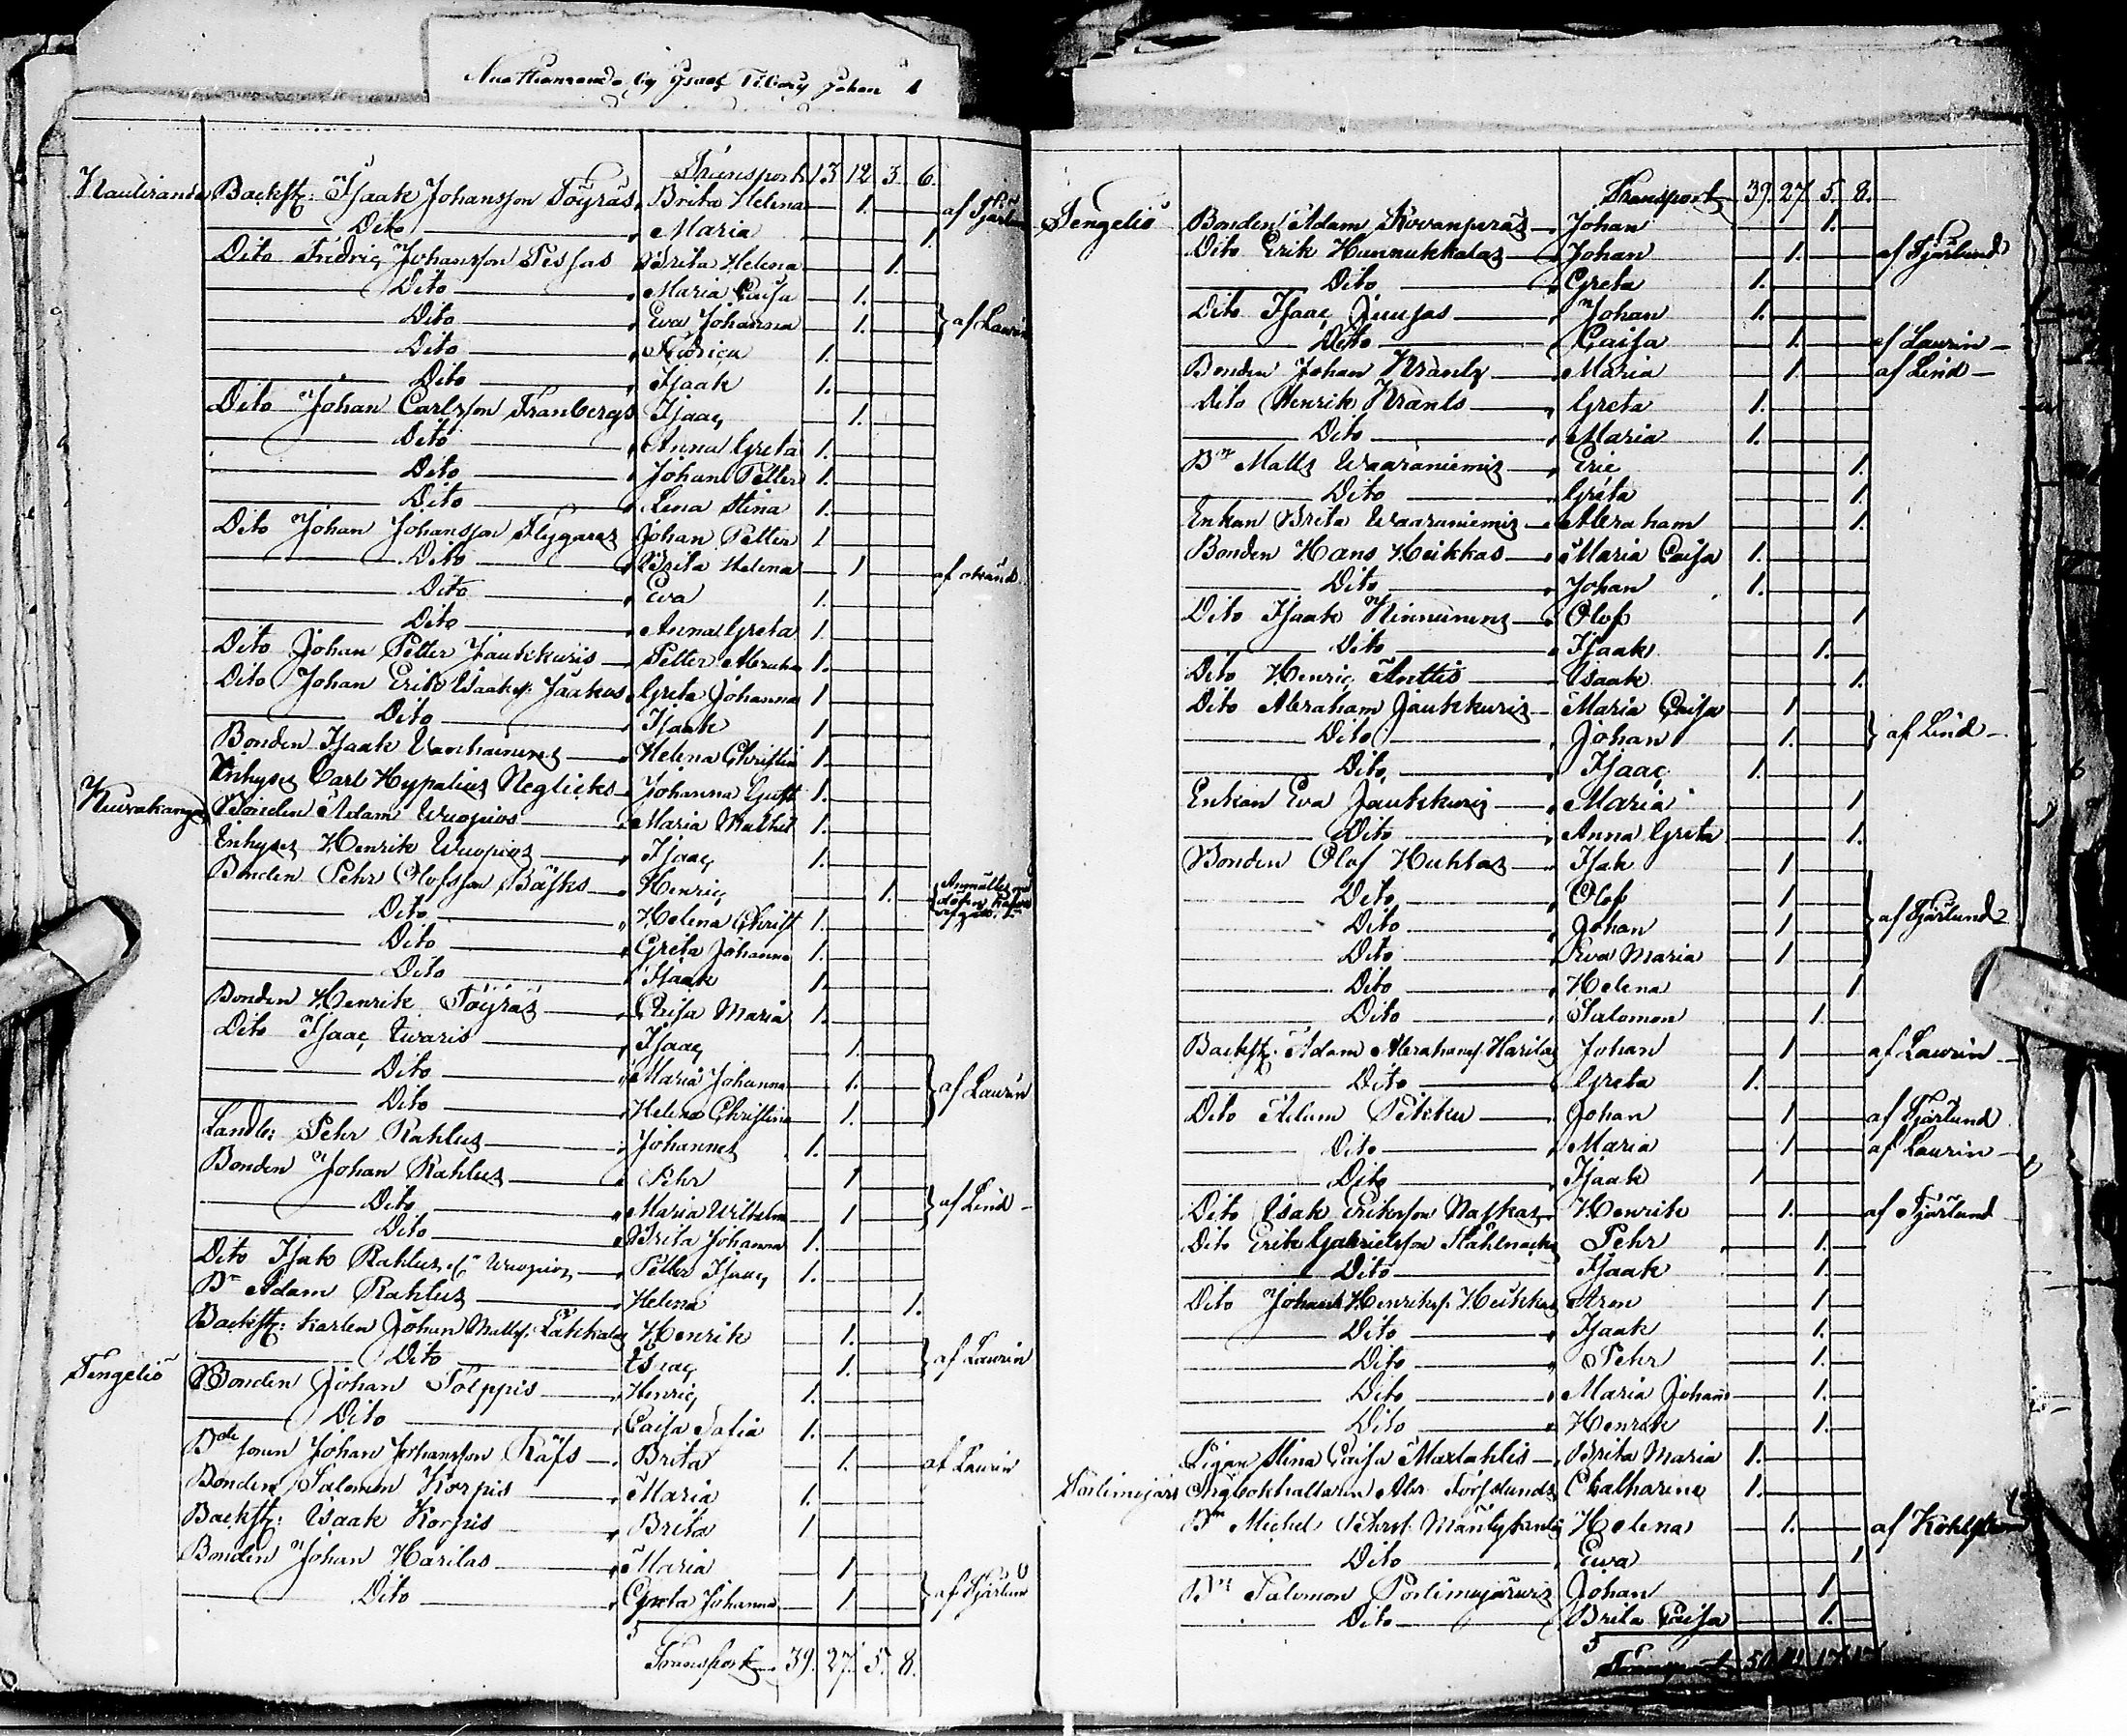 by Isaac Johan 1
Transport 13 12 3. 6.
Nautiranda Backst: Isaak Johansson Töyräs Brita Helena 1. af Fjärlun
Dito Maria 1.
Dito Fredric Johansson Brita Helena 1.
Dito Maria Caisa 1.
Dito Eva Johanna 1. } af Laurin
Dito 1.
Dito Isaak 1.
Dito Johan Carlsson Franbergs Isaac 1.
Dito Anna Greta 1.
Dito Johan Petter 1.
Dito Lena Stina 1.
Dito Johan Johansson Flygares Johan Petter 1
Dito Brita Helena 1
Dito Eva 1.
Dito Anna Greta 1.
Dito Johan Petter Jaukkuris Petter Abraha 1.
Dito Johan Erik Isaaks: Jaakos Greta Johanna 1
Dito Isaak 1
Bonden Isaak Helena Christin 1.
Inhyses Carl Hypalius Neglicks Johanna Gust 1.
Kuivakangas Bonden Adam Wuopios Maria Mathil 1.
Inhyses Henrik Wuopios Isaac 1.
Bonden Pehr Olofsson Bäsks Henric 1.
Dito Helena Christ 1.
Dito Greta Johanna 1.
Dito Isaak 1.
Bonden Henrik Töyräs Caisa Maria 1.
Dito Isaac Isaac 1.
Dito Maria Johanna 1. } af Laurin
Dito Helena Christina 1.
Landb: Pehr Rahtus Johannes 1.
Bonden Johan Rahtus Pehr 1
Dito Maria Wilhelm 1 } af Lind
Dito Brita Johanna 1.
Dito Isak Rahtus Wuopios Petter Isaac 1.
Bn Adam Rahtus Helena 1.
Backst: karlen Johan Matts: Lakkalas Henrik 1.
Dito Isaac 1. } af Laurin
Tengeliö Bonden Johan Poippis Henric 1.
Dito Caisa Salia 1.
Johan Johansson Brita 1. af Laurin
Bonden Salomon Korpis Maria 1.
Backst: Isaak Korpis Brita 1
Bonden Johan Harilas Maria 1
Dito Greta Johanna 1. } af Fjärlun
Transport 39. 27. 5. 8.
Transport 39. 27. 5. 8.
Tengeliö Bonden Adam Rovanperäs Johan 1.
Dito Erik Hannukkalas Johan 1. af Fjärlund
Dito Greta 1.
Dito Isaac Juusas Johan 1.
Dito Caisa 1. af Laurin
Bonden Johan Krants Maria 1. af Lind
Dito Henrik Krants Greta 1.
Dito Maria 1.
Bn Matts Waaraniemis Eric 1.
Dito Greta 1.
Enkan Brita Waaraniemis Abraham 1.
Bonden Hans Heikkas Maria Caisa 1.
Dito Johan 1.
Dito Isaak Olof 1
Dito Isaak 1.
Dito Henric Anttis Isaak 1.
Dito Abraham Jaukkuris Maria Caisa 1
Dito Johan 1. } af Lind
Dito Isaac 1.
Enkan Eva Jaukkuris Maria 1
Dito Anna Greta 1.
Bonden Olof Huhtas Isak 1
Dito Olof 1
Dito Johan 1 } af Fjärlund
Dito Eva Maria 1
Dito Helena 1
Dito Salomon 1.
Backst: Adam Abrahams: Harilas Johan 1 af Laurin
Dito Greta 1.
Dito Adam Pekku Johan 1 af Fjärlund
Dito Maria 1 af Laurin
Dito Isaak 1
Dito Isak Eriksson Naskas Henrik 1. af Fjärlund
Dito Erik Gabrielsson Stålnacke Pehr 1.
Dito Isaak 1.
Dito Johan Henriks: Heikkas Aron 1
Dito Isaak 1.
Dito Pehr 1.
Dito Maria Johan 1.
Dito Henrik 1.
Pigan Stina Caisa Brita Maria 1.
Portimojärvi Abr Forsslunds Chatharina 1.
Bn Michel Helena 1. af Kohlström
Dito Ewa 1
Bn Salomon Portimojärwis Johan 1
Dito Brita Caisa 1.
Transport